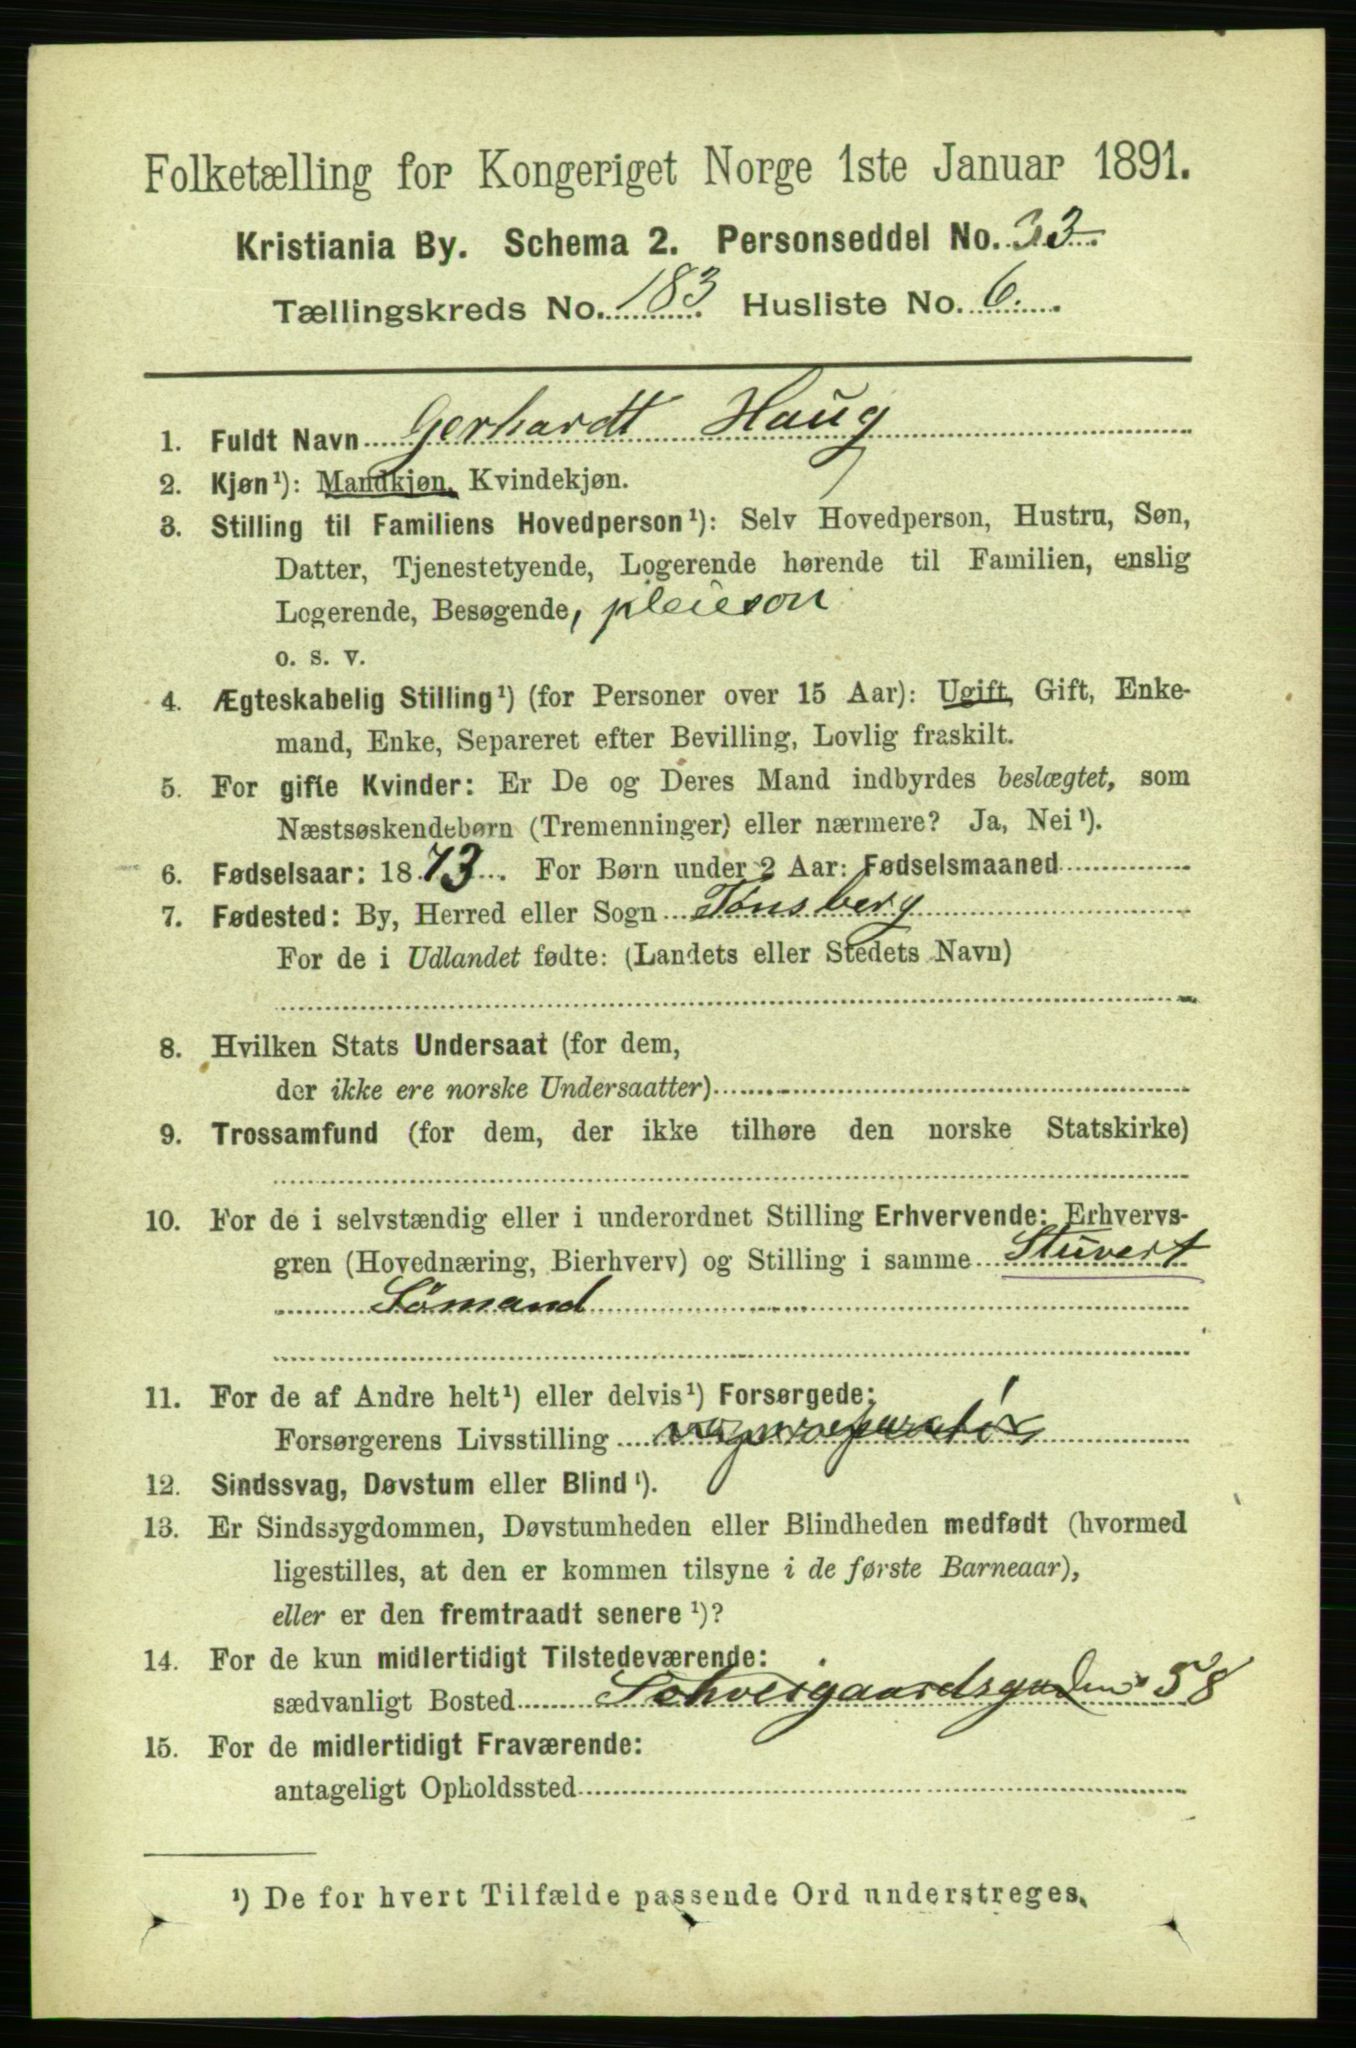 Folketælling for Kongeriget Norge 1ste Januar 1891.
Kristiania By. Schema 2. Personseddel No. 33
Tællingskreds No. 183 Husliste No. 6.
1. Fuldt Navn Gerhardt Haug
2. Kjøn¹): Mandkjøn, Kvindekjøn.
3. Stilling til Familiens Hovedperson¹): Selv Hovedperson, Hustru, Søn,
Datter, Tjenestetyende, Logerende hørende til Familien, enslig
Logerende, Besøgende, pleiesøn
o. s. v.
4. Ægteskabelig Stilling¹) (for Personer over 15 Aar): Ugift, Gift, Enke-
mand, Enke, Separeret efter Bevilling, Lovlig fraskilt.
5. For gifte Kvinder: Er De og Deres Mand indbyrdes beslægtet, som
Næstsøskendebørn (Tremenninger) eller nærmere? Ja, Nei¹).
6. Fødselsaar: 1873. For Børn under 2 Aar: Fødselsmaaned
7. Fødested: By, Herred eller Sogn Tønsberg
For de i Udlandet fødte: (Landets eller Stedets Navn)
8. Hvilken Stats Undersaat (for dem,
der ikke ere norske Undersaatter)
9. Trossamfund (for dem, der ikke tilhøre den norske Statskirke)
10. For de i selvstændig eller i underordnet Stilling Erhvervende: Erhvervs-
gren (Hovednæring, Bierhverv) og Stilling i samme Stuvert
Sømand
11. For de af Andre helt¹) eller delvis¹) Forsørgede:
Forsørgerens Livsstilling
12. Sindssvag, Døvstum eller Blind¹).
13. Er Sindssygdommen, Døvstumheden eller Blindheden medfødt (hvormed
ligestilles, at den er kommen tilsyne i de første Barneaar),
eller er den fremtraadt senere¹)?
14. For de kun midlertidigt Tilstedeværende:
sædvanligt Bosted Schveigaardsgaden 58
15. For de midlertidigt Fraværende:
antageligt Opholdssted
¹) De for hvert Tilfælde passende Ord understreges.